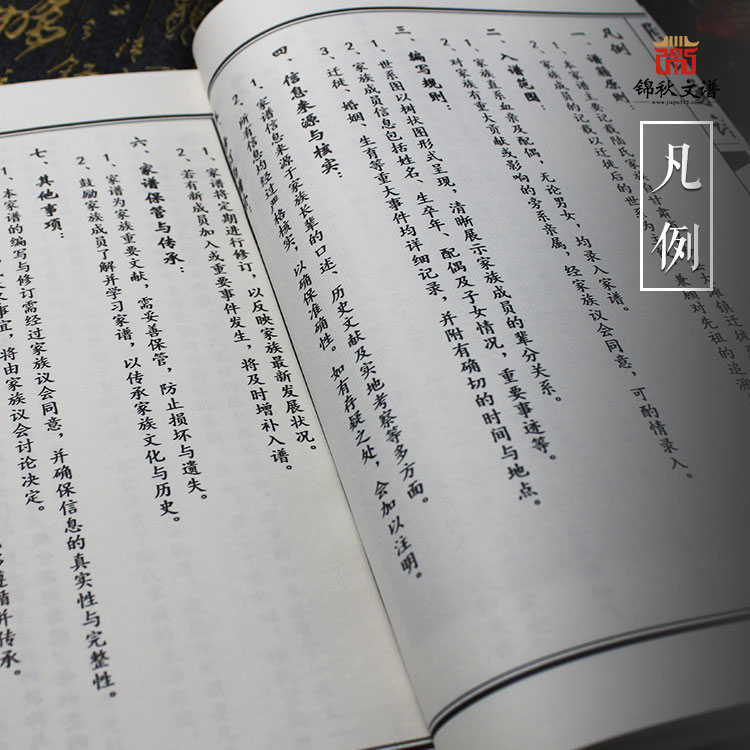 锦秋文谱
www.jiapu315.com
凡例
凡例
一、谱籍原则：
1、本家谱主要记载陆氏家族
2、家族成员的记载以迁徙后的世系为主，兼顾对先祖的追溯
二、入谱范围：
1、家族直系血亲及配偶，无论男女，均录入家谱。
2、对家族有重大贡献或影响的旁系亲属，经家族议会同意，可酌情录入。
三、编写规则：
1、世系图以树状图形式呈现，清晰展示家族成员的辈分关系。
2、家族成员信息包括姓名、生卒年、配偶及子女情况，重要事迹等。
3、迁徙、婚姻、生育等重大事件均详细记录，并附有确切的时间与地点。
四、信息来源与核实：
1、家谱信息来源于家族长辈的口述、历史文献及实地考察等多方面。
2、所有信息均经过严格核实，以确保准确性。如有存疑之处，会加以注明。
1、家谱将定期进行修订，以反映家族最新发展状况。
2、若有新成员加入或重要事件发生，将及时增补入谱。
六、家谱保管与传承：
1、家谱为家族重要文献，需妥善保管，防止损坏与遗失。
2、鼓励家族成员了解并学习家谱，以传承家族文化与历史。
七、其他事项：
1、本家谱的编写与修订需经过家族议会同意，并确保信息的真实性与完整性。
事宜，将由家族议会讨论决定。
遵循并传承。